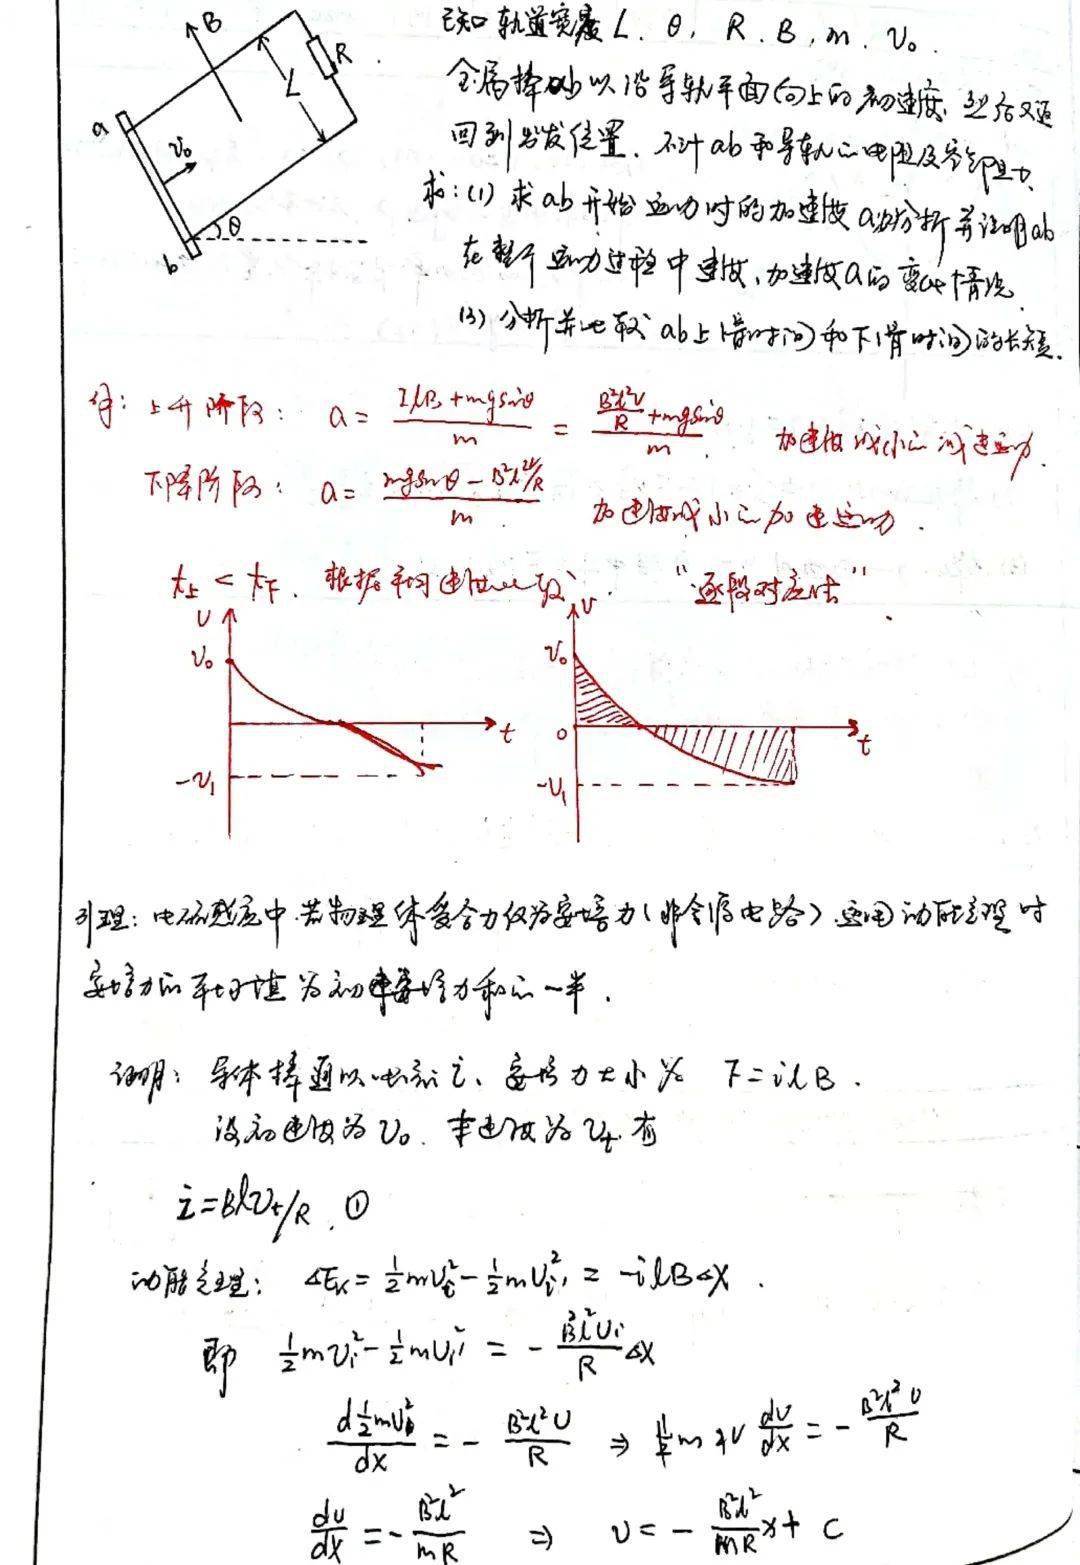 B
R
L
a
v₀
b
θ
已知 轨道宽度 L、θ, R、B, m、v₀.
金属棒ab以沿导轨平面向上的初速度,
回到出发位置. 不计ab和导轨的电阻及空气阻力.
求:(1) 求ab开始运动时的加速度a 分析并说明ab
在整个运动过程中速度、加速度a的变化情况.
(3) 分析并比较ab上滑时间和下滑时间的长短.
上升阶段: a = (IlB + mgsinθ)/m = (B²l²v/R + mgsinθ)/m . 加速度减小的减速运动.
下降阶段: a = (mgsinθ - B²l²v/R)/m . 加速度减小的加速运动.
t上 < t下. 根据平均速度比较. "逐段对应法".
v
v₀
t
-v₁
v
v₀
0
t
-v₁
引理: 电磁感应中,若物理体受合力仅为安培力(非含源电路)运用动能定理时
安培力的平均值为初末安培力和的一半.
证明: 导体棒通以电流 i、安培力大小为 F=ilB.
设初速度为 v₀. 末速度为 vₜ 有
i=Blvₜ/R . ①
动能定理: ΔEₖ = ½mvᵢ² - ½mvᵢ'² = -ilBΔx .
即 ½mvᵢ² - ½mvᵢ'² = - (B²l²vᵢ/R) Δx
d½mv²/dx = - B²l²v/R ⇒ ½m 2v dv/dx = - B²l²v/R
dv/dx = - B²l²/mR ⇒ v = - (B²l²/mR) x + C